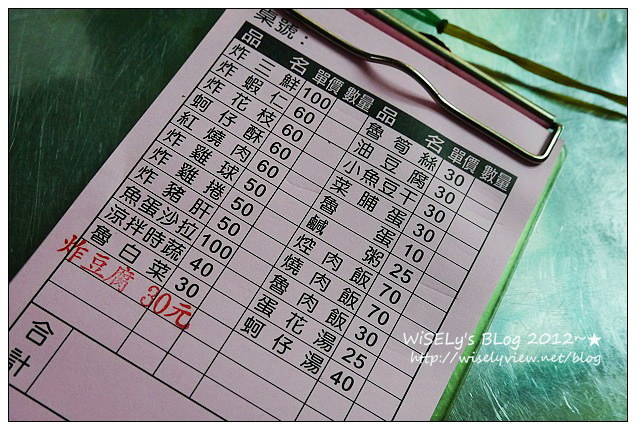 桌號：
品 名 單價 數量 品 名 單價 數量
炸三鮮 100 魯筍絲 30
炸蝦仁 60 油豆腐 30
炸花枝 60 小魚豆干 30
蚵仔酥 60 菜脯蛋 30
紅燒肉 60 魯蛋 10
炸雞球 50 鹹粥 25
炸雞捲 50 焢肉飯 70
炸豬肝 50 燒肉飯 70
魚蛋沙拉 100 魯肉飯 30
涼拌時蔬 40 蛋花湯 25
魯白菜 30 蚵仔湯 40
炸豆腐 30元
合計
WiSELy's BLog 2012~★
http://wiselyview.net/blog